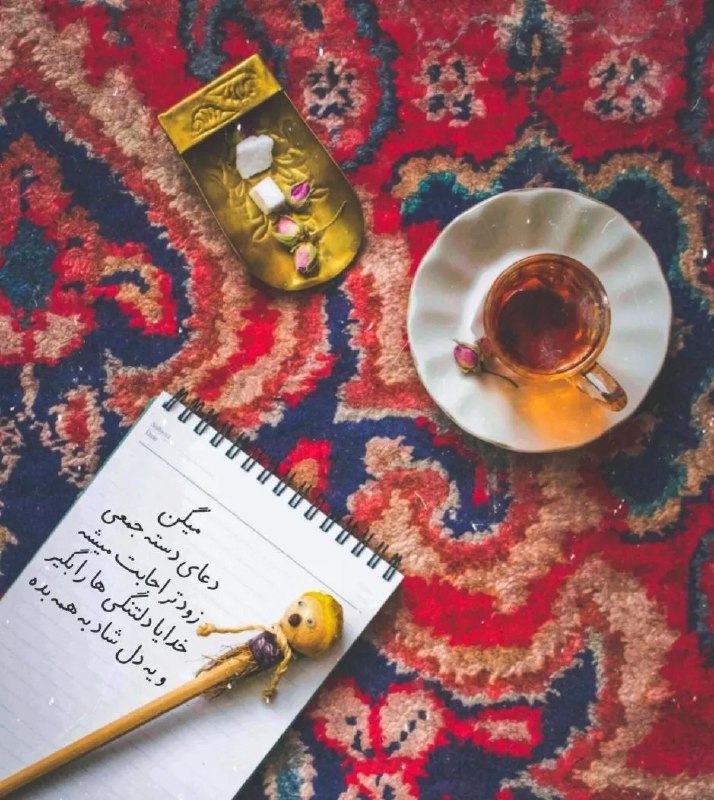 میگن
دعای دسته جمعی
زودتر اجابت میشه
خدایا دلتنگی ها را بگیر
و یه دل شاد به همه بده